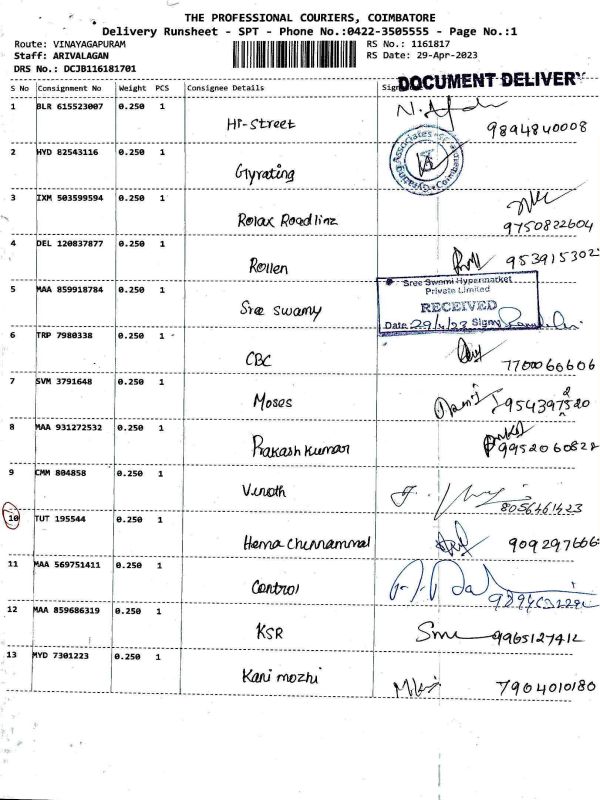 THE PROFESSIONAL COURIERS, COIMBATORE
Delivery Runsheet - SPT - Phone No.:0422-3505555 - Page No.:1
Route: VINAYAGAPURAM RS No.: 1161817
Staff: ARIVALAGAN RS Date: 29-Apr-2023
DRS No.: DCJB116181701
DOCUMENT DELIVERY
S No Consignment No Weight PCS Consignee Details
1 BLR 615523007 0.250 1 Hi-Street 9894840008
2 HYD 82543116 0.250 1 Gyrating
3 IXM 503599594 0.250 1 Rolax Roadlinz 9750822604
4 DEL 120837877 0.250 1 Rollen 953915302
5 MAA 859918784 0.250 1 Sree Swamy
Sree Swami Hypermarket
Private Limited
RECEIVED
Date 29/4/23 Sign
6 TRP 7980338 0.250 1 CBC 7700060606
7 SVM 3791648 0.250 1 Moses
8 MAA 931272532 0.250 1 Prakash Kumar 9952060822
9 CMM 804858 0.250 1 Vinoth 8056461423
10 TUT 195544 0.250 1 Hema Chinnammal 909297666
11 MAA 569751411 0.250 1 Control
12 MAA 859686319 0.250 1 KSR 9965127412
13 MYD 7301223 0.250 1 Kani mozhi 7904010180